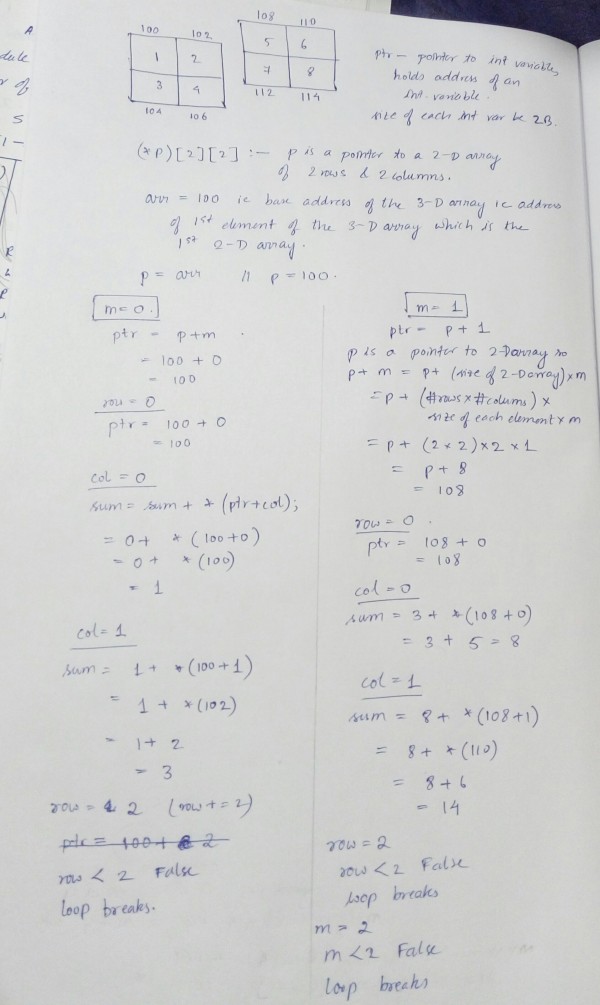 100 102
1 2
3 4
104 106
108 110
5 6
7 8
112 114
ptr - pointer to int variables,
holds address of an
int variable.
size of each int var be 2B.
(*p)[2][2] :- p is a pointer to a 2-D array
of 2 rows & 2 columns.
arr = 100 ie base address of the 3-D array ie address
of 1st element of the 3-D array which is the
1st 2-D array.
p = arr // p = 100.
m=0.
ptr = p+m
= 100 + 0
= 100
row = 0
ptr = 100 + 0
= 100
col = 0
sum = sum + *(ptr+col);
= 0+ *(100+0)
= 0+ *(100)
= 1
col= 1
sum = 1+ *(100+1)
= 1+ *(102)
= 1+ 2
= 3
row = 2 (row+=2)
ptr = 100+ 2
row < 2 False
loop breaks.
m= 1
ptr = p + 1
p is a pointer to 2-D array so
p+ m = p+ (size of 2-D array)×m
= p + (#rows×#colums) ×
size of each element × m
= p + (2×2)×2×1
= p + 8
= 108
row = 0.
ptr = 108 + 0
= 108
col = 0
sum = 3+ *(108+0)
= 3 + 5 = 8
col = 1
sum = 8+ *(108+1)
= 8+ *(110)
= 8+6
= 14
row=2
row<2 False
loop breaks
m = 2
m<2 False
loop breaks